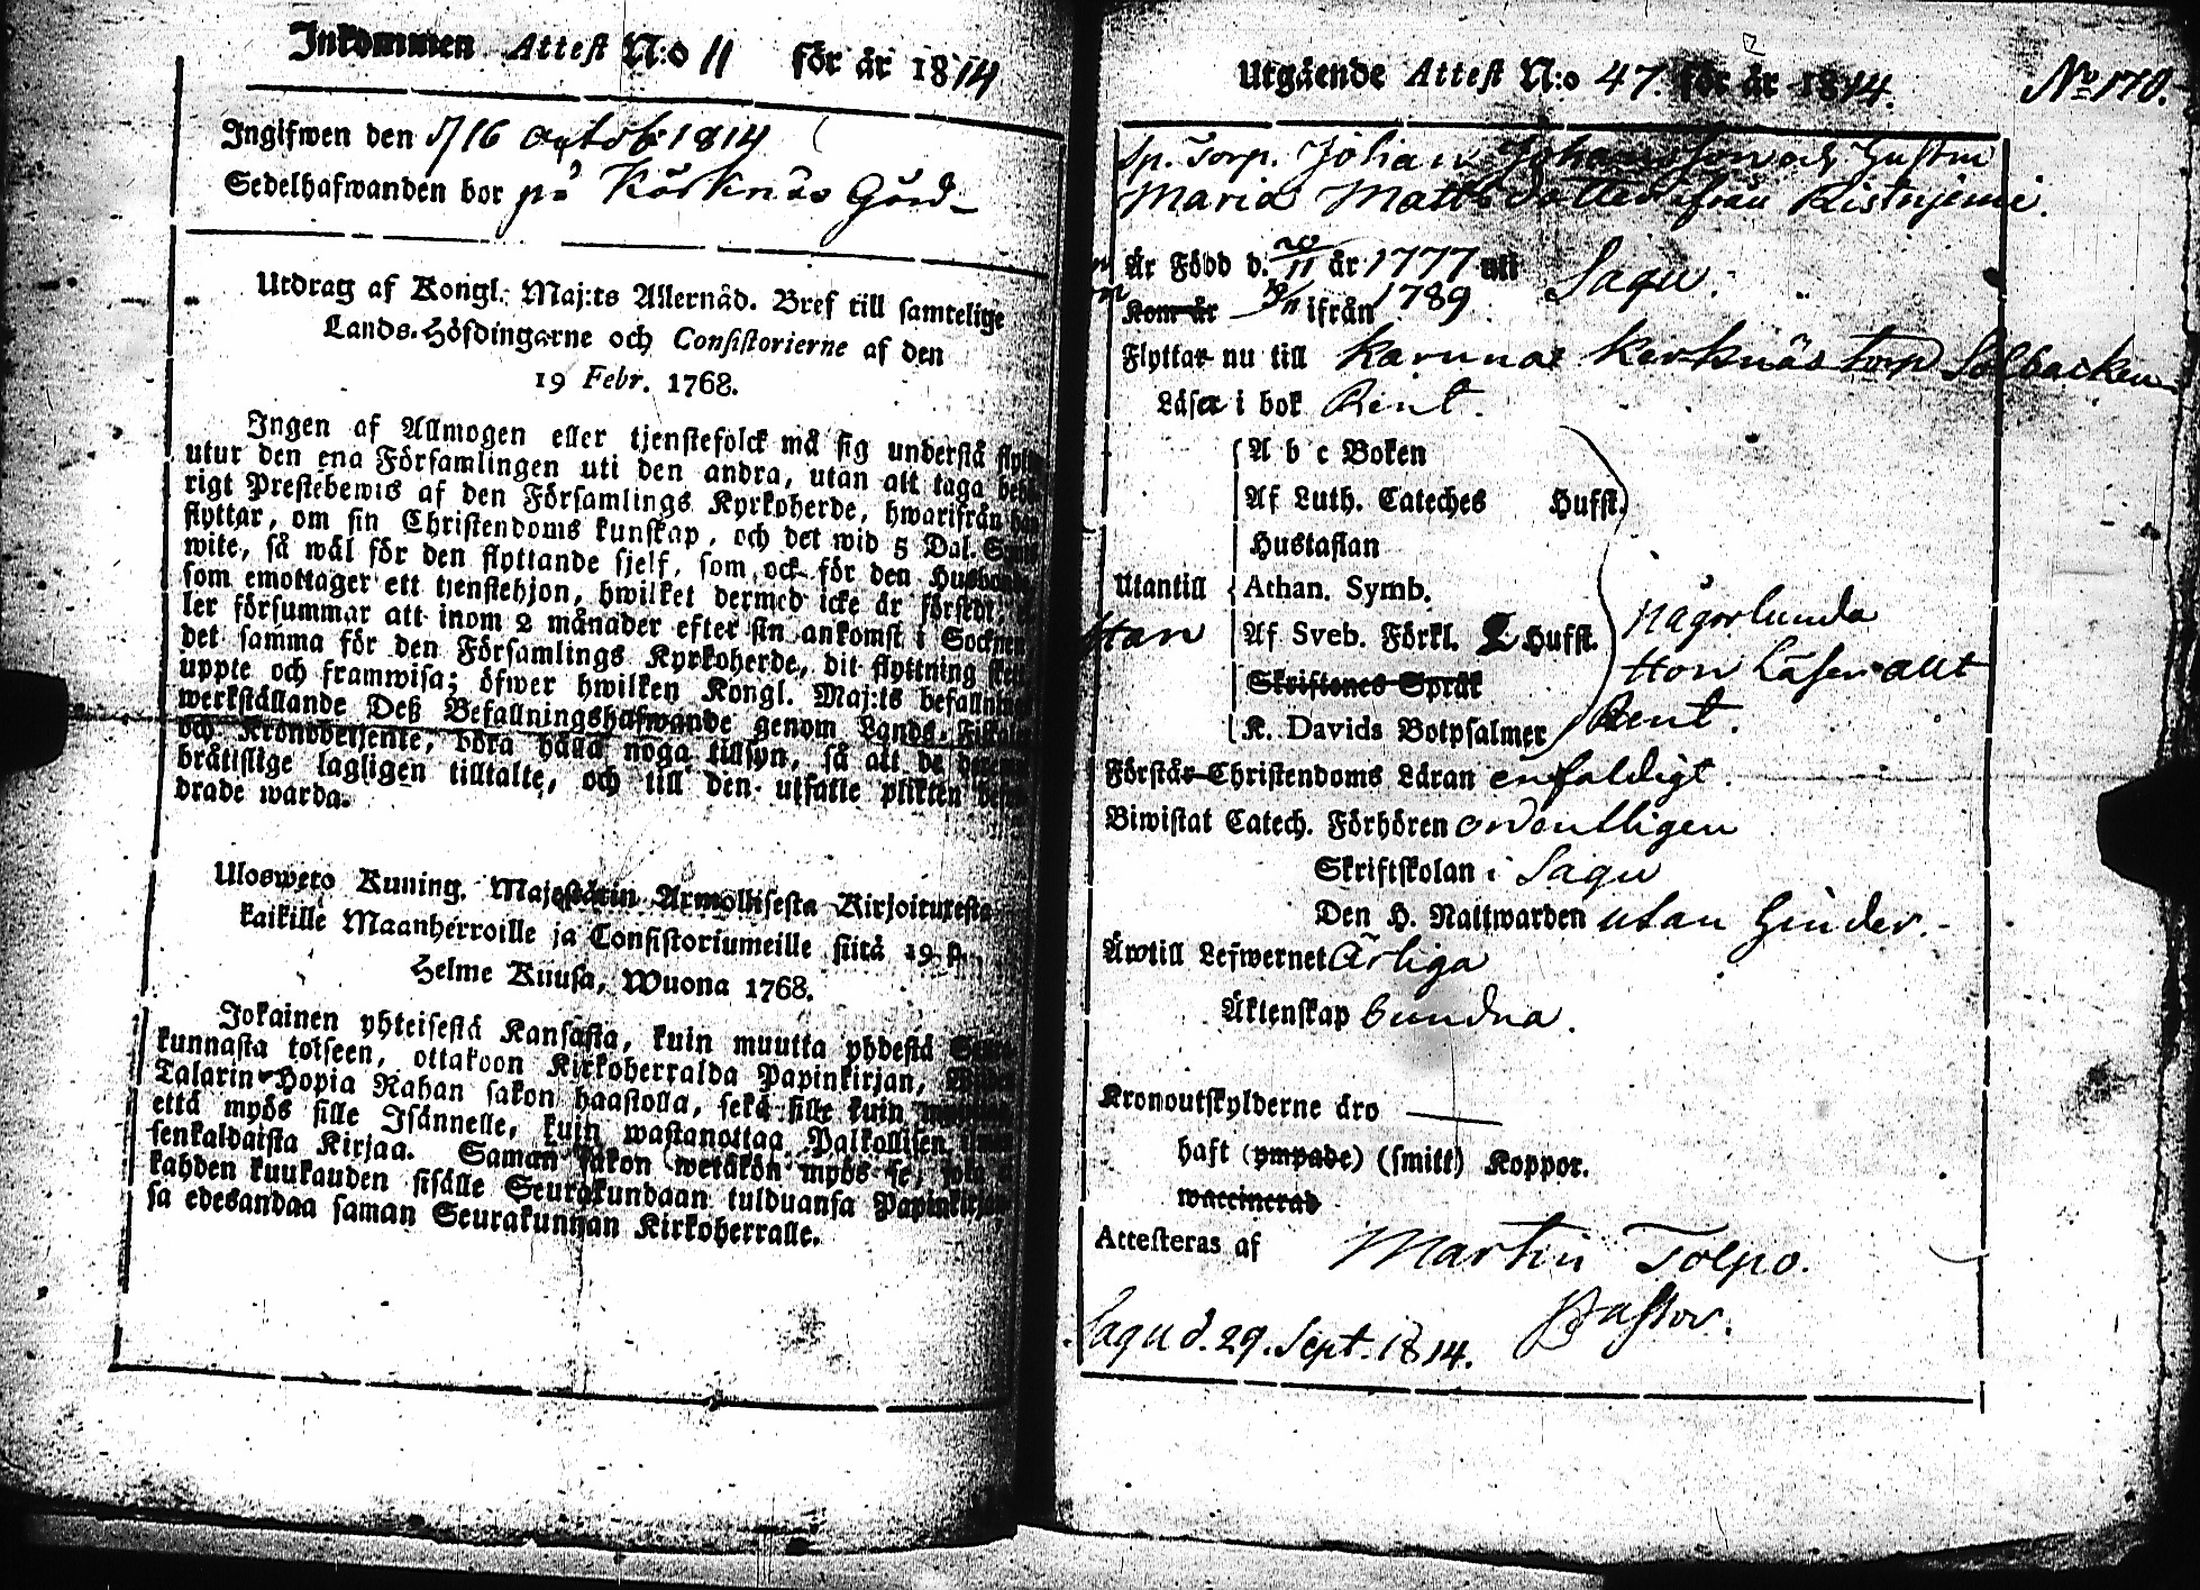 Inkommen Attest N:o 11 för år 1814
Ingifwen den 16 octob 1814
Sedelhafwanden bor på Körknäs Gård
Utdrag af Kongl. Maj:ts Allernåd. Bref till samtelige
Lands-Höfdingarne och Consistorierne af den
19 Febr. 1768.
Ingen af Allmogen eller tjenstefolck må sig understå
utur den ena Församlingen uti den andra, utan att taga
rigt Prestebewis af den Församlings Kyrkoherde, hwarifrån
flyttar, om sin Christendoms kunskap, och det wid 5 Dal.
wite, så wäl för den flyttande sjelf, som ock för den
som emottager ett tjenstehjon, hwilket dermed icke är försedt,
ler försummar att inom 2 månader efter sin ankomst i Socknen
det samma för den Församlings Kyrkoherde, dit flyttning
uppte och framwisa; öfwer hwilken Kongl. Maj:ts befallning
werkställande Deß Befallningshafwande genom Lands-
och Kronobetjente, böra hålla noga tillsyn, så att de
bråttslige lagligen tilltalte, och till den utfälle plikten
drade warda.
Ulosweto Kuning. Majestätin Armollisesta Kirjoituxesta
kaikille Maanherroille ja Consistoriumeille siitä 19 p.
Helme Kuusa, Wuona 1768.
Jokainen yhteisestä Kansasta, kuin muutta yhdestä
kunnasta toiseen, ottakoon Kirkoherralda Papinkirjan,
Talarin Hopia Rahan sakon haastolla, sekä sille kuin
että myös sille Isännelle, kuin wastanottaa Palkollisen
senkaldaista Kirjaa. Saman sakon wetäkön myös se,
kahden kuukauden sisälle Seurakundaan tulduansa
sa edesandaa saman Seurakunnan Kirkoherralle.
Utgående Attest N:o 47. för år 1814.
No 170.
Sp. Torp. Johan Johansson och Hustru
Maria Mattsdotter ifrån Ristniemi.
Är Född d. 20/11 år 1777 uti Sagu.
Kom år ifrån 1789
Flyttar nu till Karuna Kerknäs torp Solbacken
Läser i bok Rent.
A b c Boken
Af Luth. Cateches Hufst.
Hustaflan
Utantill Athan. Symb.
Han Af Sveb. Förkl. Hufst.
någorlunda
Hon Läser allt
Skriftenes Språk
Rent.
K. Davids Botpsalmer
Förstår Christendoms Läran enfaldigt.
Biwistat Catech. Förhören ordentligen
Skriftskolan i Sagu
Den H. Nattwarden utan hinder.
Äro till Lefwernet Ärliga
Äktenskap bundna.
Kronoutskylderne äro
haft (ympade) (smitt) Koppor.
waccinerad
Attesteras af Martin Tolpo.
Pastor.
Sagu d. 29. Sept. 1814.